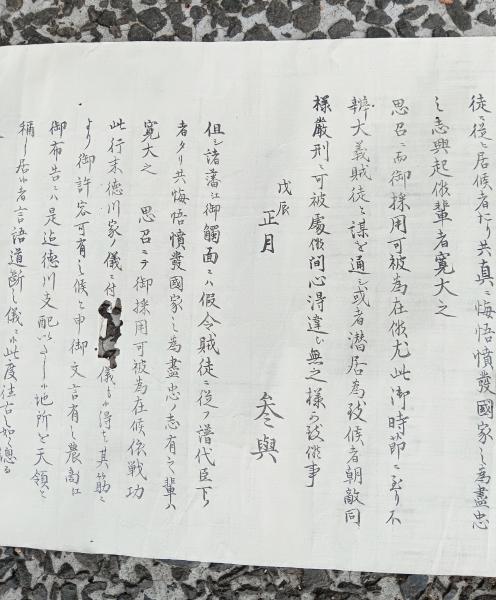 徒ニ從ヒ居候者タリ共真ニ悔悟憤發國家之為盡忠
之志興起候輩者寛大之
思召ニ而御採用可被為在候尤此御時節ニ至リ不
辨大義賊徒ト謀を通シ或者潜居為致候者朝敵同
様嚴刑ニ可被處候間心得違ひ無之様可致候事
戊辰
正月
参與
但シ諸藩江御觸面ニハ假令賊徒ニ從フ譜代臣下ノ
者タリ共悔悟憤發國家之為盡忠ノ志有之輩ハ
寛大之 思召ニテ御採用可被為在候依戦功
此行末徳川家ノ儀ニ付 儀も候得ハ其筋ニ
より御許容可有之候と申御文言有之農商江
御布告ニハ是迠徳川支配いたし候地所を天領と
稱し居候者言語道断之儀ニ候此度往古ノ如く總る